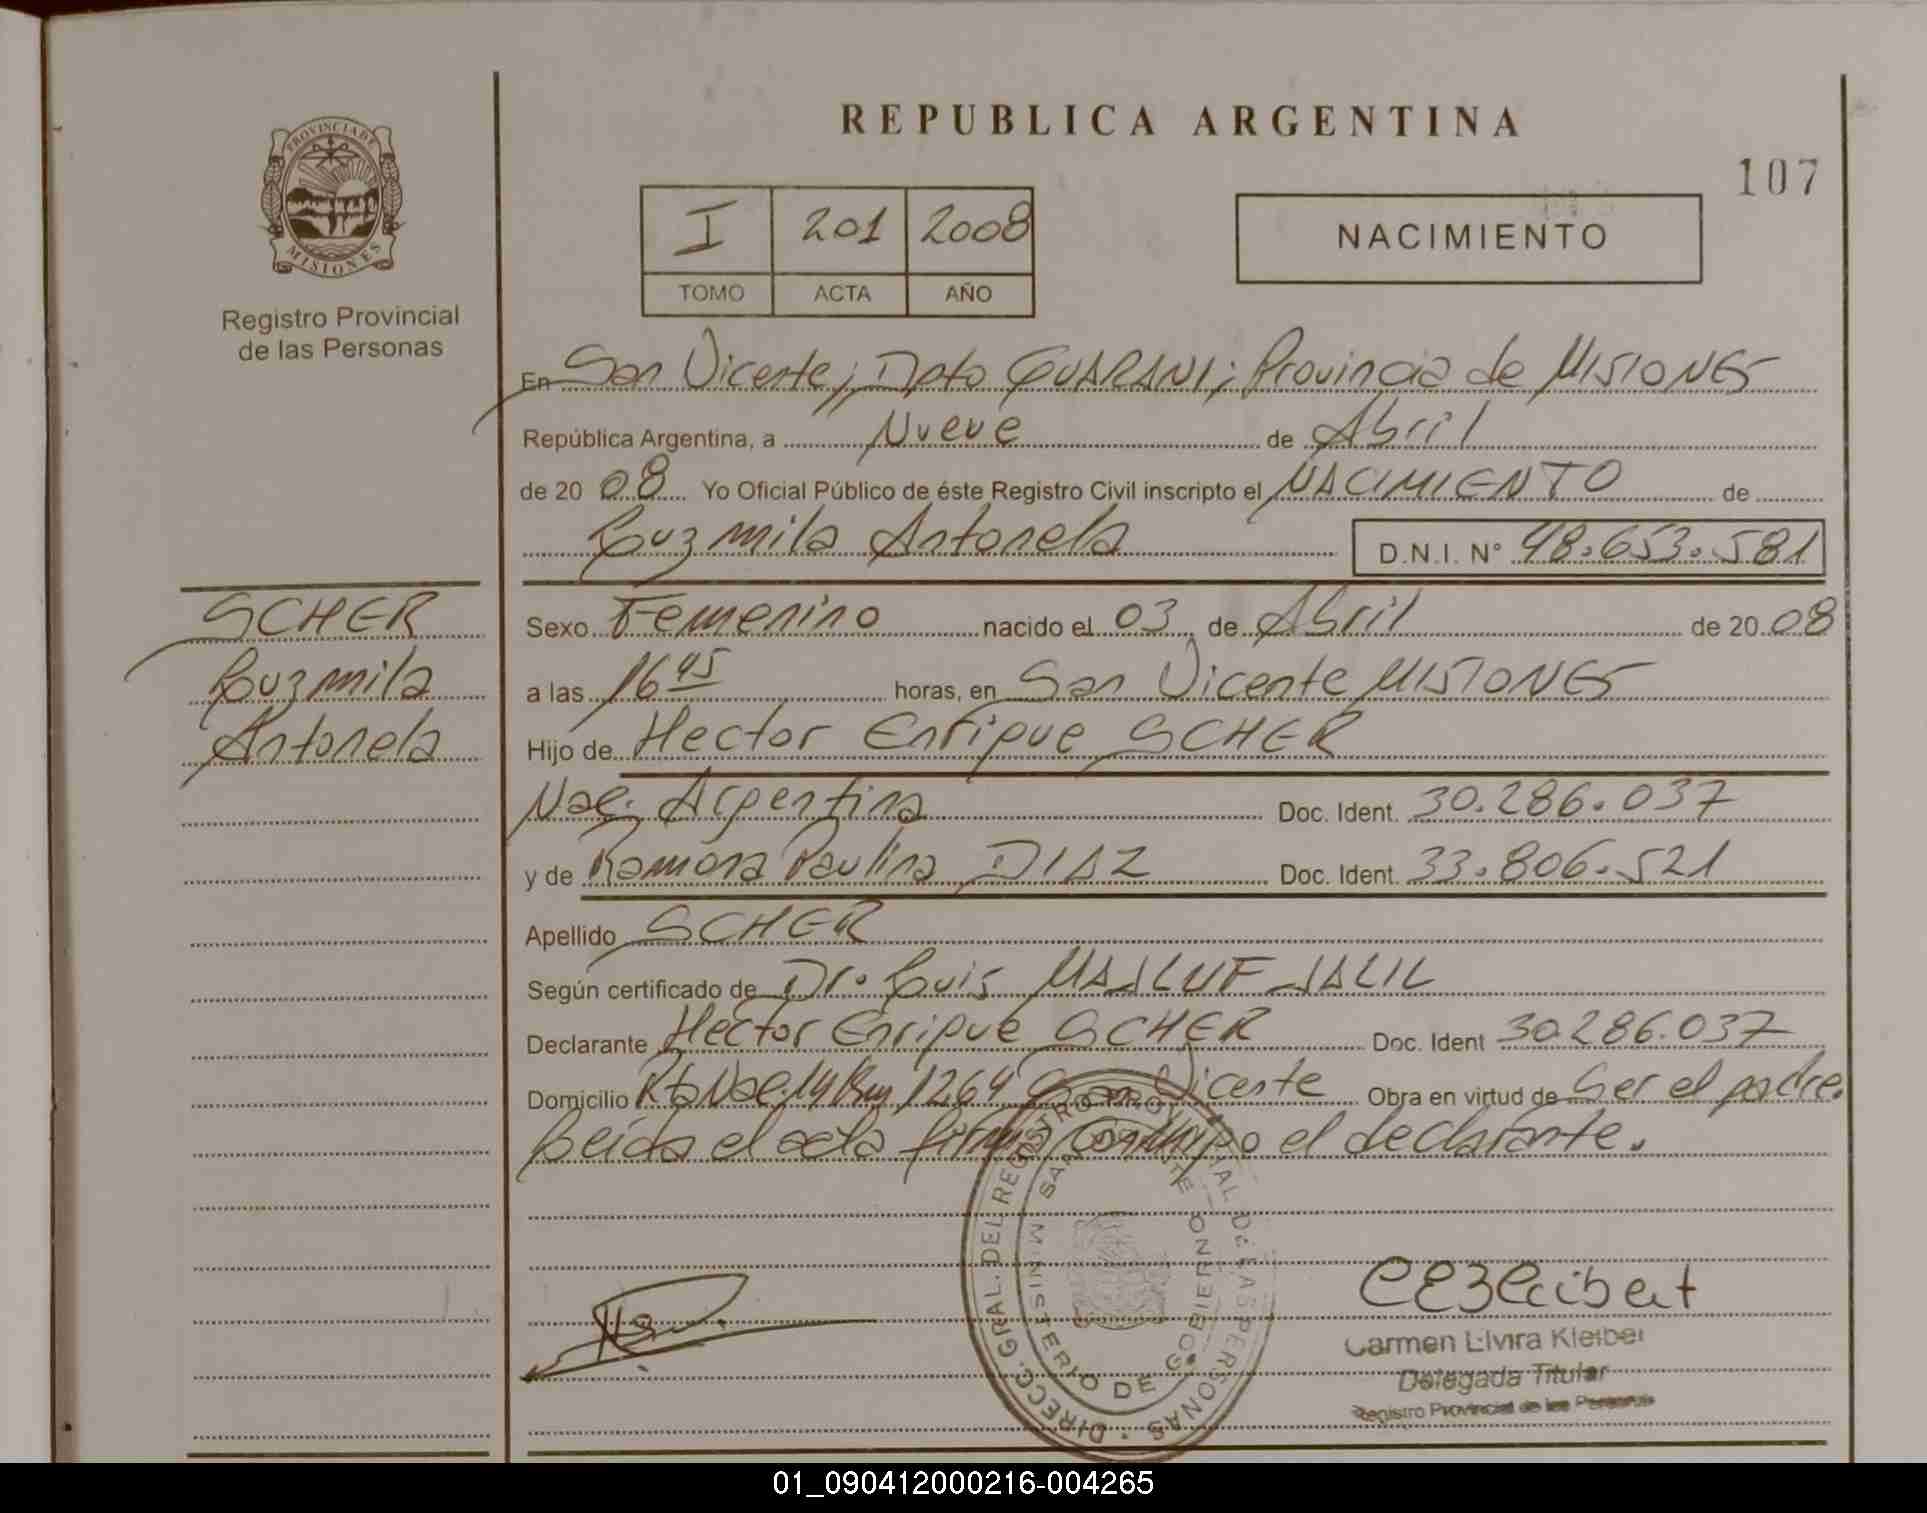 PROVINCIA DE
MISIONES
Registro Provincial
de las Personas
REPUBLICA ARGENTINA
107
I 201 2008
TOMO ACTA AÑO
NACIMIENTO
En San Vicente, Dpto GUARANI; Provincia de MISIONES
República Argentina, a Nueve de Abril
de 20 08 Yo Oficial Público de éste Registro Civil inscripto el NACIMIENTO de
Luzmila Antonela D.N.I. N° 48.653.581
SCHER
Luzmila
Antonela
Sexo Femenino nacido el 03 de Abril de 20 08
a las 16 45 horas, en San Vicente MISIONES
Hijo de Hector Enrique SCHER
Nac. Argentina Doc. Ident. 30.286.037
y de Ramona Paulina DIAZ Doc. Ident. 33.806.521
Apellido SCHER
Según certificado de Dr. Luis MAJLUF JALIL
Declarante Hector Enrique SCHER Doc. Ident 30.286.037
Domicilio Rta Nac. 14 Km 1264 San Vicente Obra en virtud de Ser el padre.
Leida el acta firma conmigo el declarante.
DIRECC. GRAL. DEL REGISTRO PROVINCIAL DE LAS PERSONAS
SAN VICENTE
MINISTERIO DE GOBIERNO
Carmen Elvira Kleiber
Delegada Titular
Registro Provincial de las Personas
01_090412000216-004265